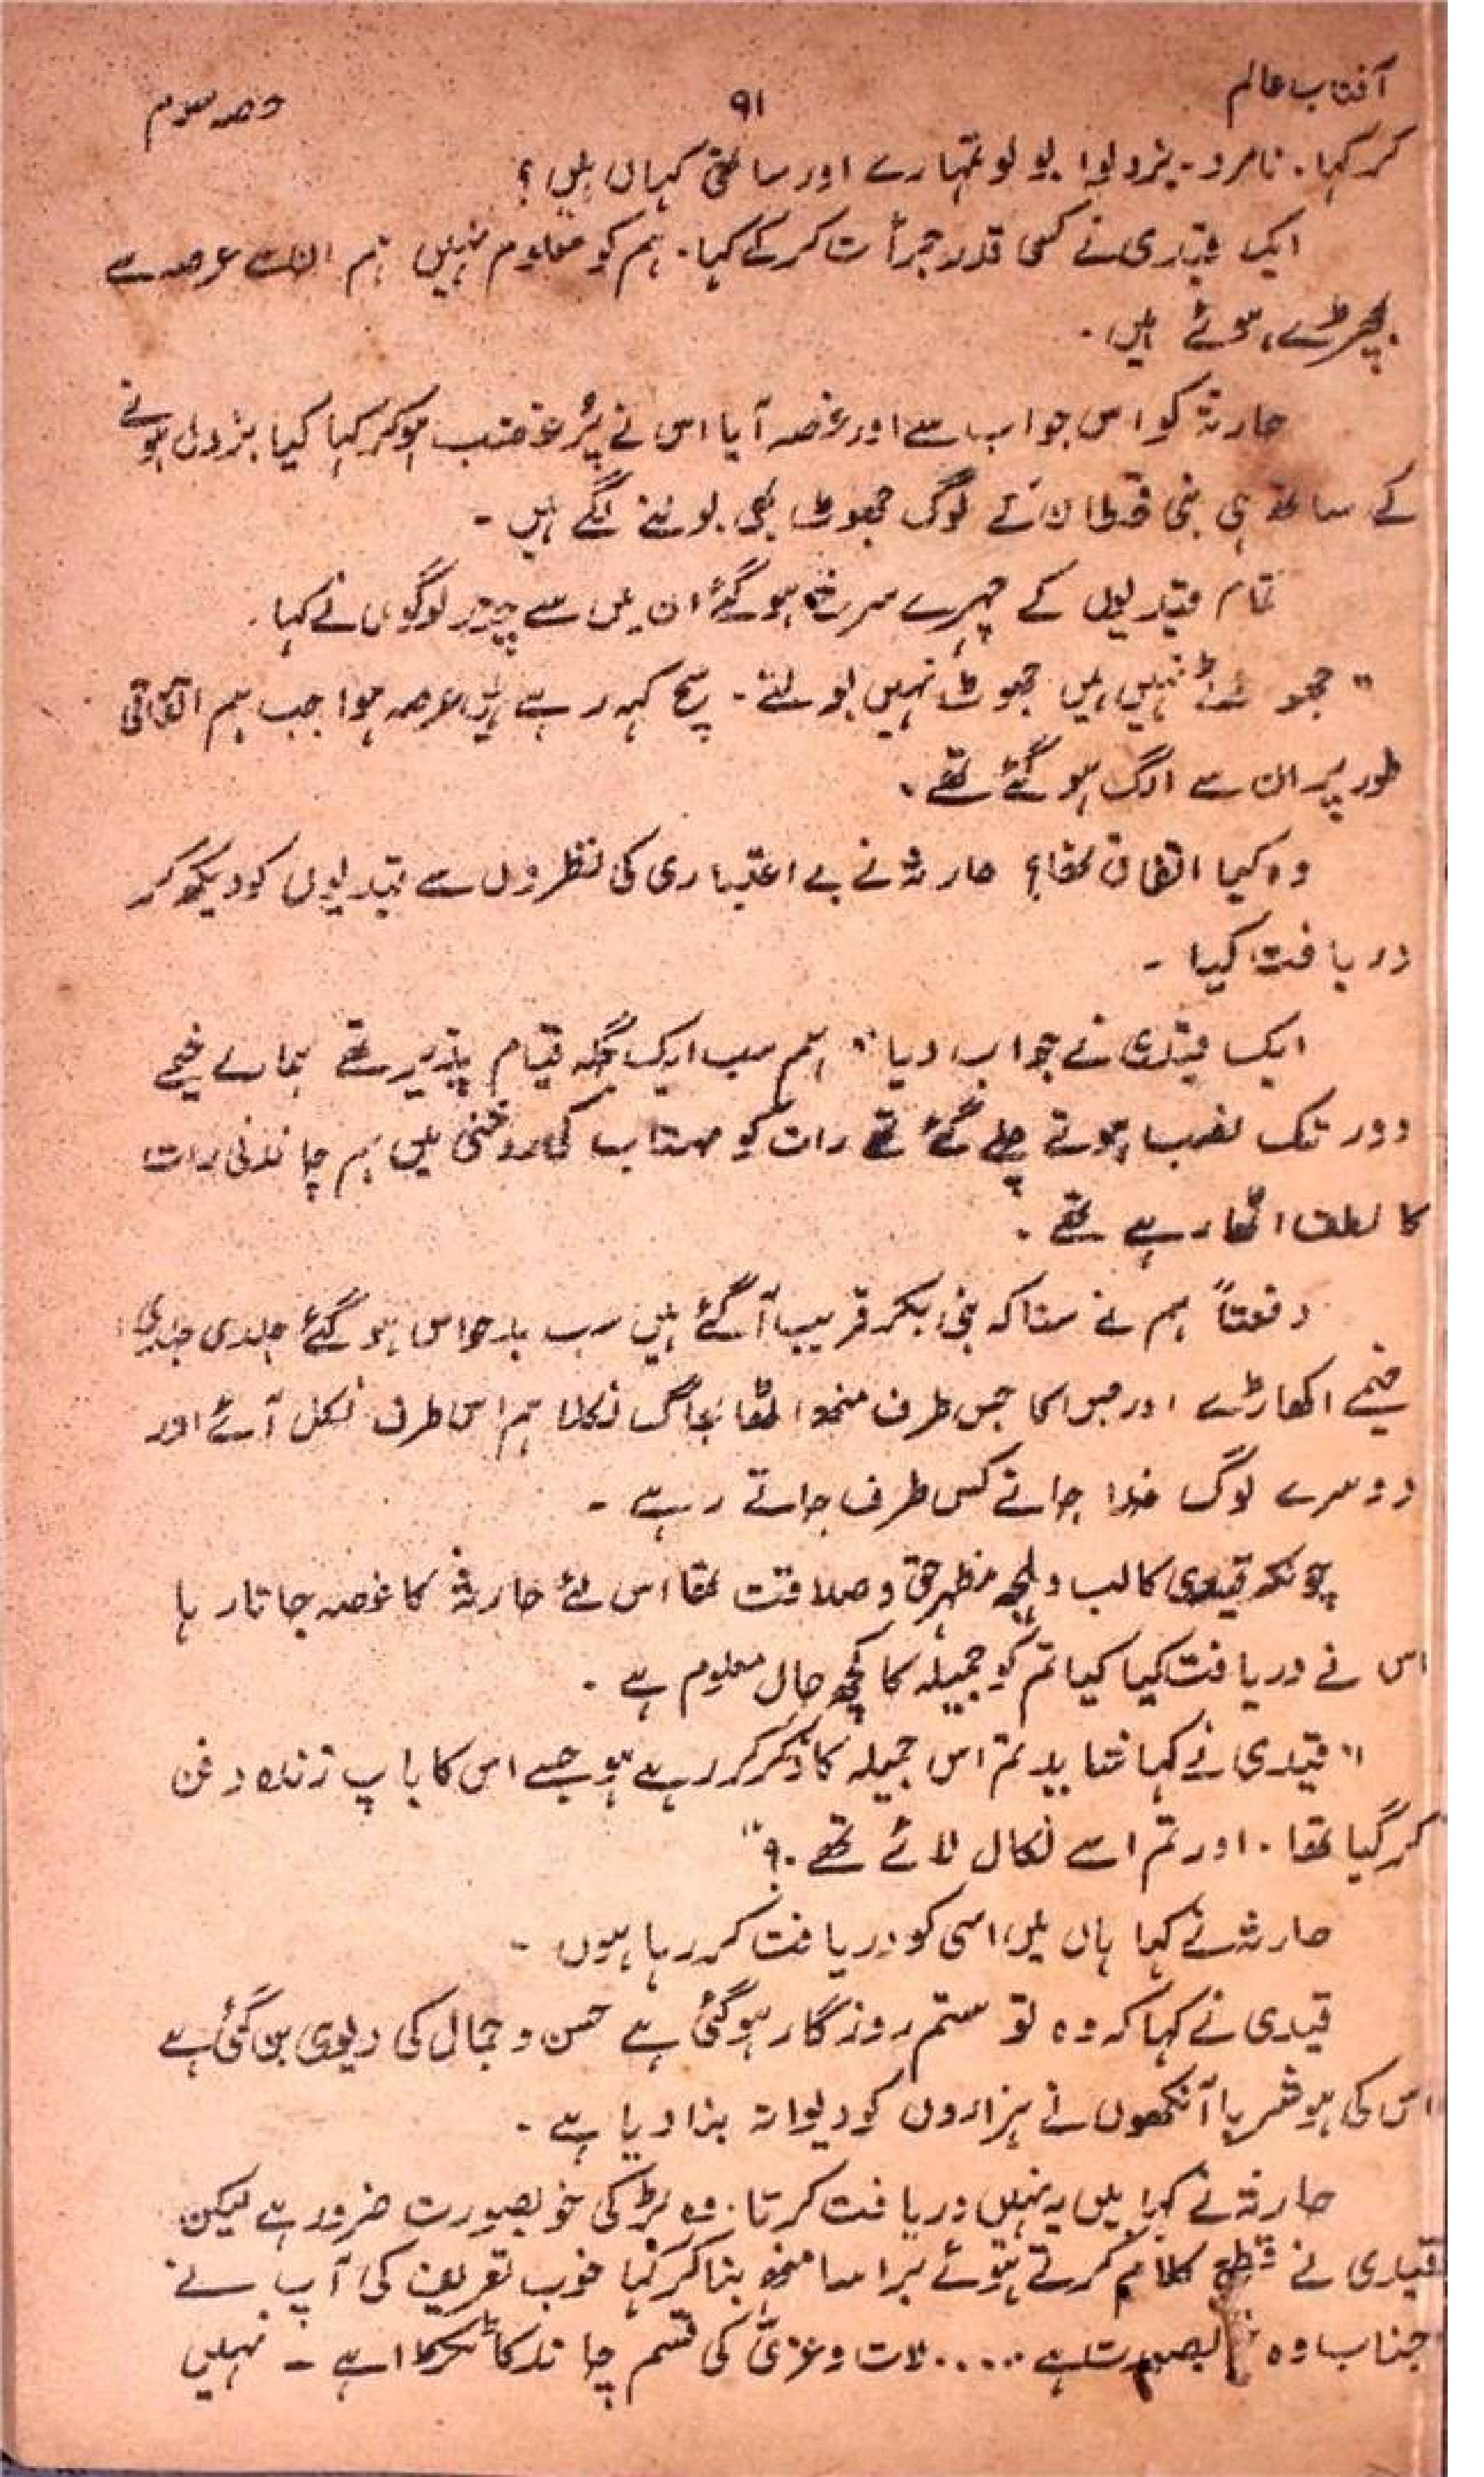 آفتاب عالم ۹۱ حصہ سوم
کر کہا۔ نامرد۔ بزدلو! بولو تمہارے اور ساتھی کہاں ہیں؟
ایک قیدی نے کسی قدر جرأت کر کے کہا۔ ہم کو معلوم نہیں ہم ان سے عرصہ سے
بچھڑے ہوئے ہیں۔
حارثہ کو اس جواب سے اور غصہ آیا اس نے پُر غضب ہو کر کہا کیا بزدل ہونے
کے ساتھ ہی بنی قحطان کے لوگ جھوٹ بھی بولنے لگے ہیں۔
تمام قیدیوں کے چہرے سرخ ہو گئے ان میں سے چند لوگوں نے کہا۔
"جھوٹے نہیں ہیں جھوٹ نہیں بولتے۔ سچ کہہ رہے ہیں عرصہ ہوا جب ہم اتفاقی
طور پر ان سے الگ ہو گئے تھے۔
وہ کیا اتفاق تھا؟ حارثہ نے بے اعتباری کی نظروں سے قیدیوں کو دیکھ کر
دریافت کیا۔
ایک قیدی نے جواب دیا" ہم سب ایک جگہ قیام پذیر تھے ہمارے خیمے
دور تک نصب ہوتے چلے گئے تھے رات کو مہتاب کی روشنی میں ہم چاندنی رات
کا لطف اٹھا رہے تھے۔
دفعتاً ہم نے سنا کہ بنی بکر قریب آ گئے ہیں سب بدحواس ہو گئے جلدی جلدی
خیمے اکھاڑے اور جس کا جس طرف منھ اٹھا بھاگ نکلا ہم اس طرف نکل آئے اور
دوسرے لوگ خدا جانے کس طرف جاتے رہے۔
چونکہ قیدی کا لب و لہجہ مظہر حق و صداقت تھا اس لئے حارثہ کا غصہ جاتا رہا
اس نے دریافت کیا کیا تم کو جمیلہ کا کچھ حال معلوم ہے۔
"قیدی نے کہا شاید تم اس جمیلہ کا ذکر کر رہے ہو جسے اس کا باپ زندہ دفن
کر گیا تھا۔ اور تم اسے نکال لائے تھے۔؟"
حارثہ نے کہا ہاں میں اسی کو دریافت کر رہا ہوں۔
قیدی نے کہا کہ وہ تو ستم روزگار ہو گئی ہے حسن و جمال کی دیوی بن گئی ہے
اس کی ہوشربا آنکھوں نے ہزاروں کو دیوانہ بنا دیا ہے۔
حارثہ نے کہا میں یہ نہیں دریافت کرتا۔ وہ لڑکی خوبصورت ضرور ہے لیکن
قیدی نے قطع کلام کرتے ہوئے برا سا منھ بنا کر کہا خوب تعریف کی آپ نے
جناب وہ خوبصورت ہے ..... لات و عزیٰ کی قسم چاند کا ٹکڑا ہے۔ نہیں